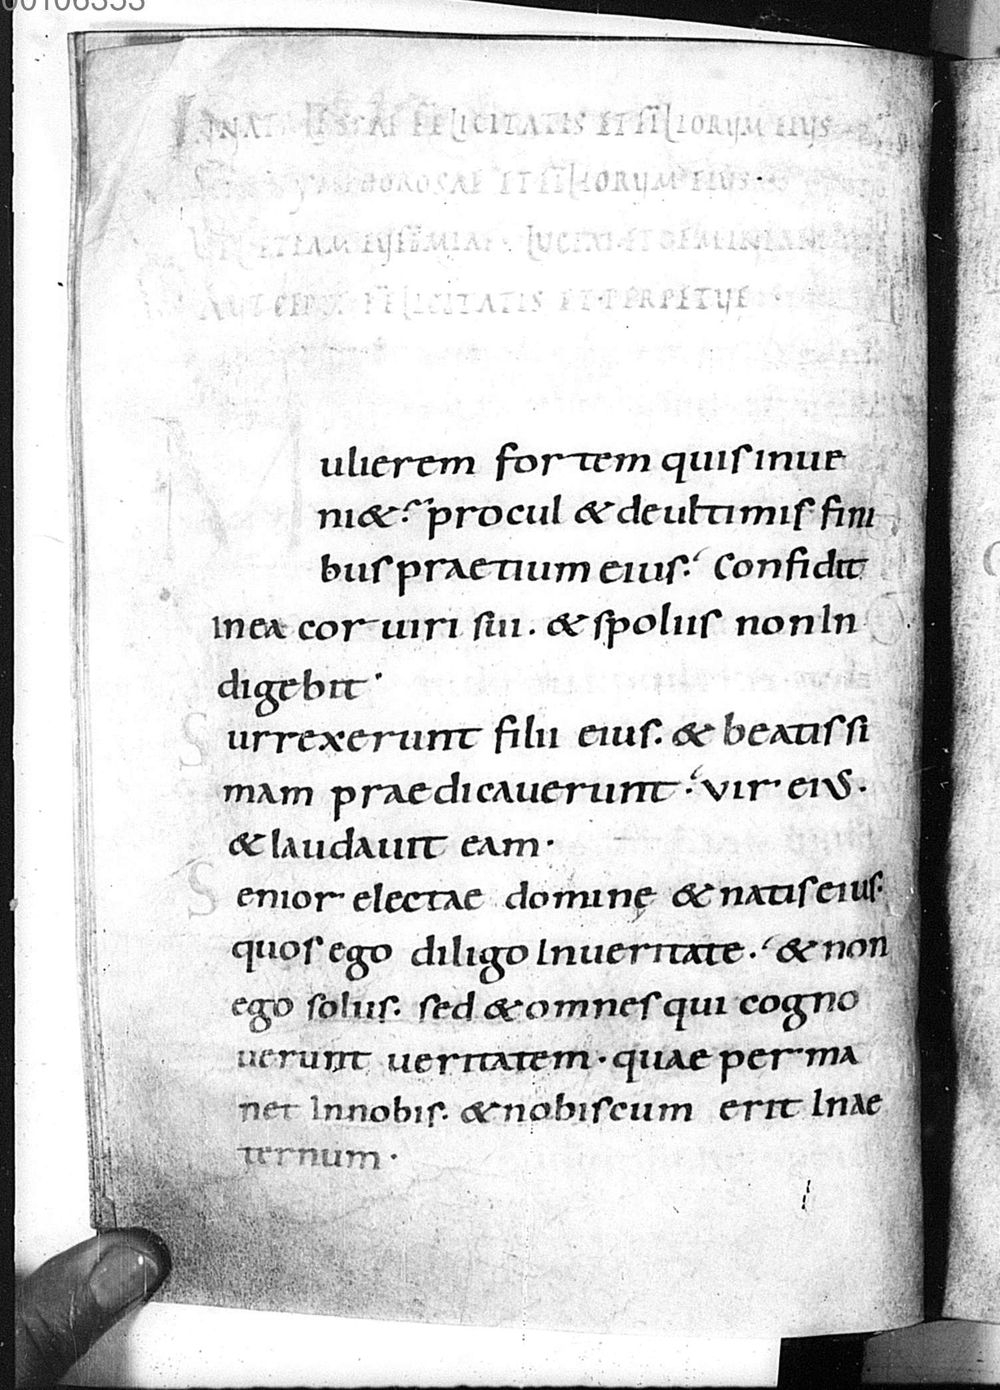 00106353
IN NAT SCAE FELICITATIS ET FILIORUM EIUS
ET FILIORUM EIUS
ETIAM EUFEMIAE LUCIAE ET GEMINIANI
AUT FELICITATIS ET PERPETUE
Mulierem fortem quis inue
ni& procul & deultimis fini
bus praetium eius. Confidit
inea cor uiri sui. & spoliis non In
digebit.
Surrexerunt filii eius. & beatissi
mam praedicauerunt. vir eius.
& laudauit eam.
Senior electae domine & natis eius.
quos ego diligo Inueritate. & non
ego solus. sed & omnes qui cogno
uerunt ueritatem. quae perma
net Innobis. & nobiscum erit Inae
ternum.